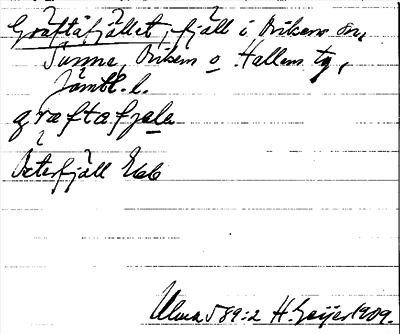 Gräftåfjället, fjäll i Ovikens sn,
Sunne, Ovikens o Hallens tg,
Jämtl. l.
græftafjæla
Österfjäll Ekb
Ulma 589:2 H. Geijer 1909.